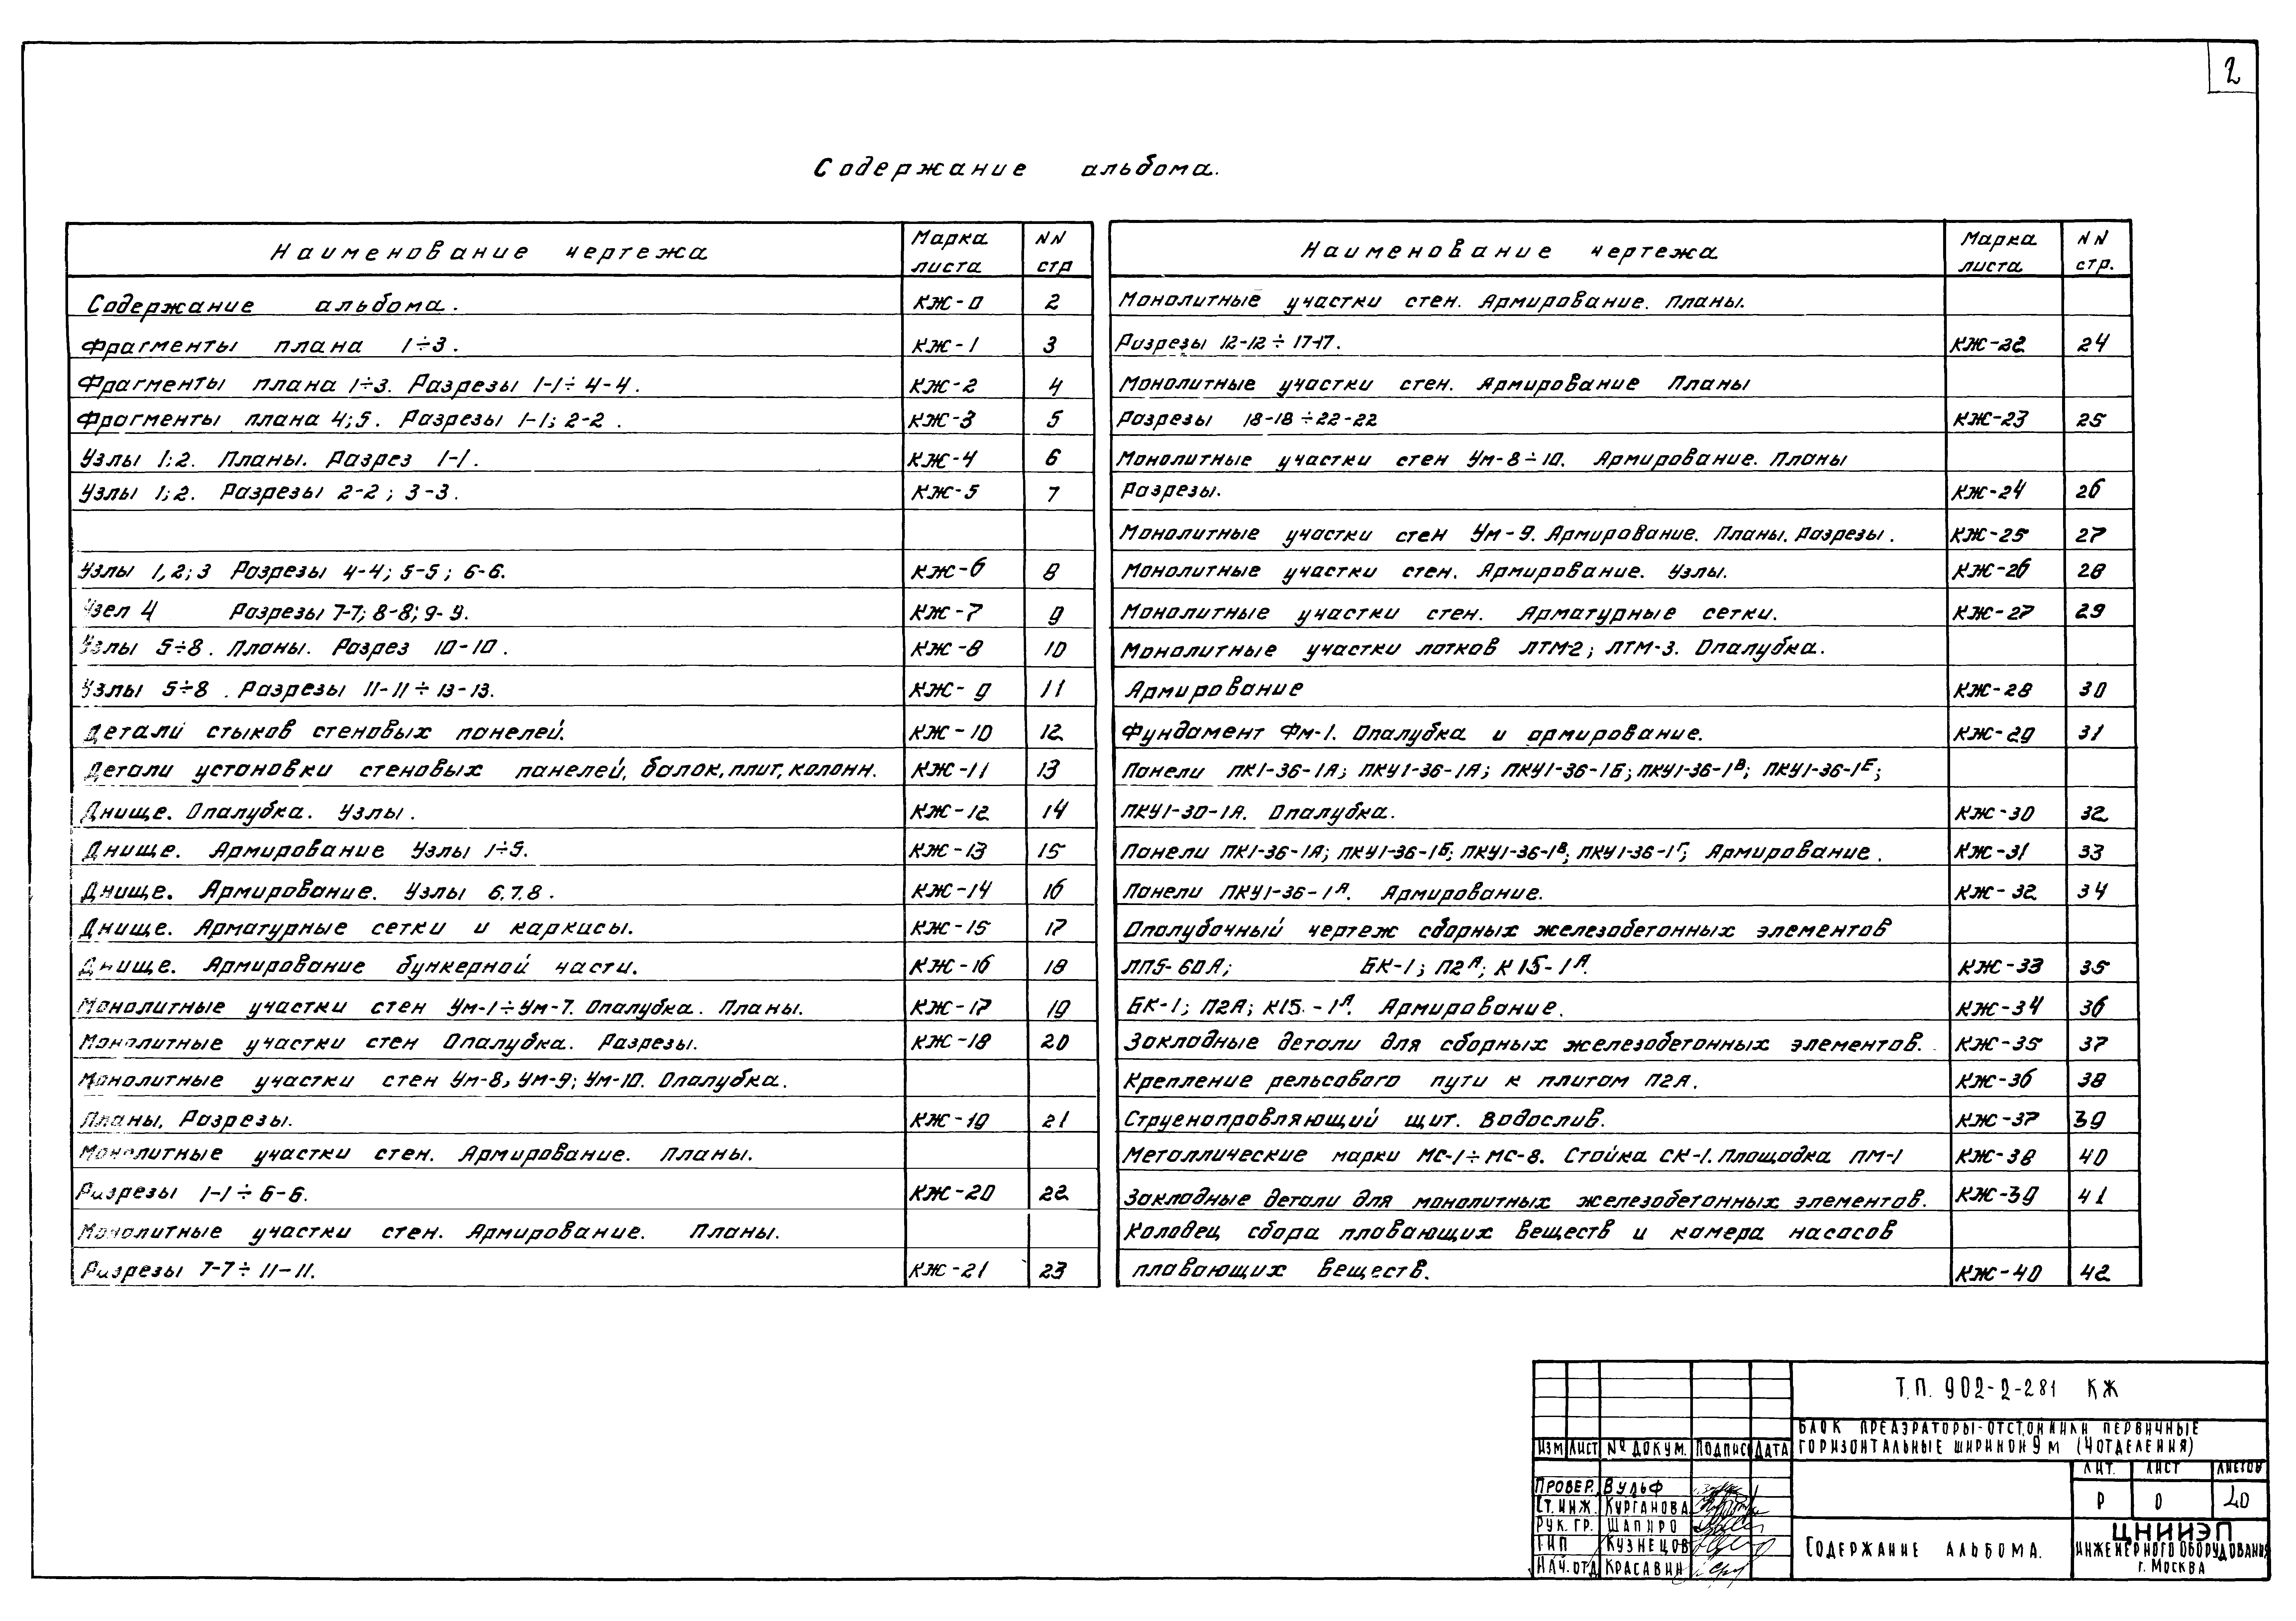 2
Содержание альбома.
Наименование чертежа Марка листа NN стр
Содержание альбома. КЖ-0 2
Фрагменты плана 1÷3. КЖ-1 3
Фрагменты плана 1÷3. Разрезы 1-1÷4-4. КЖ-2 4
Фрагменты плана 4;5. Разрезы 1-1; 2-2. КЖ-3 5
Узлы 1;2. Планы. Разрез 1-1. КЖ-4 6
Узлы 1;2. Разрезы 2-2; 3-3. КЖ-5 7
Узлы 1,2;3 Разрезы 4-4; 5-5; 6-6. КЖ-6 8
Узел 4 Разрезы 7-7; 8-8; 9-9. КЖ-7 9
Узлы 5÷8. Планы. Разрез 10-10. КЖ-8 10
Узлы 5÷8. Разрезы 11-11÷13-13. КЖ-9 11
Детали стыков стеновых панелей. КЖ-10 12
Детали установки стеновых панелей, балок, плит, колонн. КЖ-11 13
Днище. Опалубка. Узлы. КЖ-12 14
Днище. Армирование Узлы 1÷5. КЖ-13 15
Днище. Армирование. Узлы 6.7.8. КЖ-14 16
Днище. Арматурные сетки и каркасы. КЖ-15 17
Днище. Армирование бункерной части. КЖ-16 18
Монолитные участки стен Ум-1÷Ум-7. Опалубка. Планы. КЖ-17 19
Монолитные участки стен Опалубка. Разрезы. КЖ-18 20
Монолитные участки стен Ум-8, Ум-9; Ум-10. Опалубка.
Планы, Разрезы. КЖ-19 21
Монолитные участки стен. Армирование. Планы.
Разрезы 1-1÷6-6. КЖ-20 22
Монолитные участки стен. Армирование. Планы.
Разрезы 7-7÷11-11. КЖ-21 23
Наименование чертежа Марка листа NN стр.
Монолитные участки стен. Армирование. Планы.
Разрезы 12-12÷17-17. КЖ-22 24
Монолитные участки стен. Армирование Планы
Разрезы 18-18÷22-22 КЖ-23 25
Монолитные участки стен Ум-8÷10. Армирование. Планы
Разрезы. КЖ-24 26
Монолитные участки стен Ум-9. Армирование. Планы. Разрезы. КЖ-25 27
Монолитные участки стен. Армирование. Узлы. КЖ-26 28
Монолитные участки стен. Арматурные сетки. КЖ-27 29
Монолитные участки лотков ЛТМ-2; ЛТМ-3. Опалубка.
Армирование КЖ-28 30
Фундамент Фм-1. Опалубка и армирование. КЖ-29 31
Панели ПК1-36-1А; ПКУ1-36-1А; ПКУ1-36-1Б; ПКУ1-36-1В; ПКУ1-36-1Г;
ПКУ1-30-1А. Опалубка. КЖ-30 32
Панели ПК1-36-1А; ПКУ1-36-1Б; ПКУ1-36-1В; ПКУ1-36-1Г; Армирование. КЖ-31 33
Панели ПКУ1-36-1А. Армирование. КЖ-32 34
Опалубочный чертеж сборных железобетонных элементов
ЛП5-60А; БК-1; П2А; К15-1А. КЖ-33 35
БК-1; П2А; К15-1А. Армирование. КЖ-34 36
Закладные детали для сборных железобетонных элементов. КЖ-35 37
Крепление рельсового пути к плитам П2А. КЖ-36 38
Струенаправляющий щит. Водослив. КЖ-37 39
Металлические марки МС-1÷МС-8. Стойка СК-1. Площадка ПМ-1 КЖ-38 40
Закладные детали для монолитных железобетонных элементов. КЖ-39 41
Колодец сбора плавающих веществ и камера насосов
плавающих веществ. КЖ-40 42
Т.П. 902-2-281 КЖ
Блок преаэраторы-отстойники первичные
горизонтальные шириной 9 м (4 отделения)
Изм Лист № докум. Подпис Дата
Лит. Лист Листов
Р 0 40
Провер. Вульф
Ст. инж. Курганова
Рук. гр. Шапиро
ГИП Кузнецов
Нач. отд Красавин
Содержание альбома.
ЦНИИЭП
инженерного оборудования
г. Москва